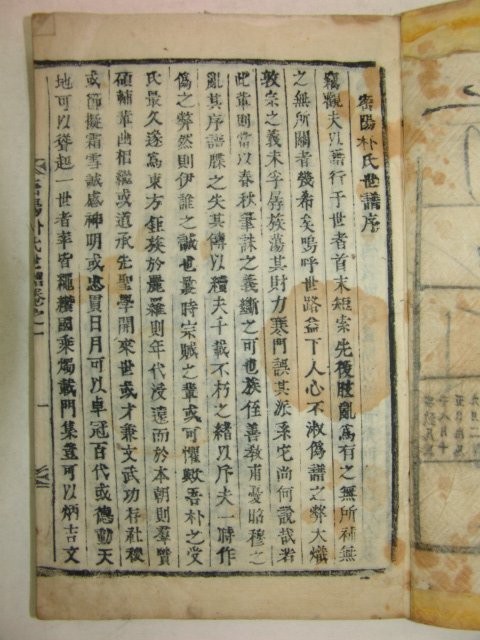 密陽朴氏世譜序
竊觀夫以譜行于世者首末短索先後腔亂焉有之無所補無
之無所關者幾希矣嗚呼世路益下人心不淑僞譜之弊大熾
敦宗之義未孚 族蕩其財力寒門誤其派系它尚何說哉若
此輩則當以春秋筆誅之義斷之可也族侄善敎甫憂昭穆之
亂其序譜牒之失其傳以續夫千載不朽之緖以斥夫一時作
僞之弊然則伊誰之誠也最時宗賊之輩或可懼歟吾朴之受
氏最久遂爲東方鉅族於麗羅則年代浸遠而於本朝則羣賢
碩輔華幽相繼或道承先聖學開來世或才兼文武功存社稷
或節擬霜雪誠感神明或忠貫日月可以卓冠百代或德動天
地可以聳起一世者率皆 國乘燭載門集豈可以炳吉文
密陽朴氏世譜卷之一
一